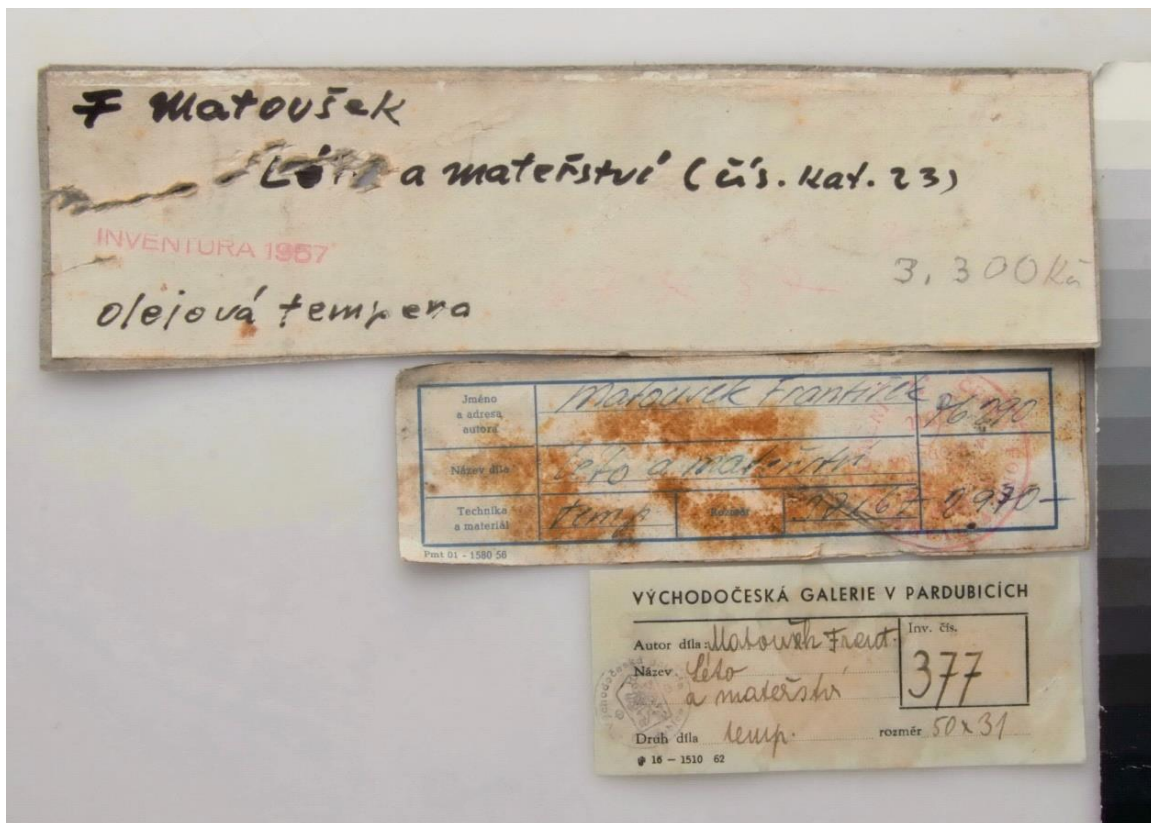 F Matoušek
Léto a mateřství (čís. kat. 23)
INVENTURA 1957
3.300 Kčs
olejová tempera
Jméno
a adresa
autora
Matoušek František
Název díla
Léto a mateřství
Technika
a materiál
temp
Rozměr
Pmt 01 - 1580 56
VÝCHODOČESKÁ GALERIE V PARDUBICÍCH
Autor díla: Matoušek Frant.
Inv. čís.
377
Název Léto
a mateřství
Druh díla temp. rozměr 50x31
16 — 1510 62